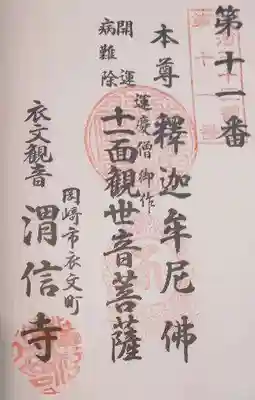 第十一番
本尊 釋迦牟尼佛
開運
病難除
運慶僧御作
十一面観世音菩薩
岡崎市衣文町
衣文観音 渭信寺